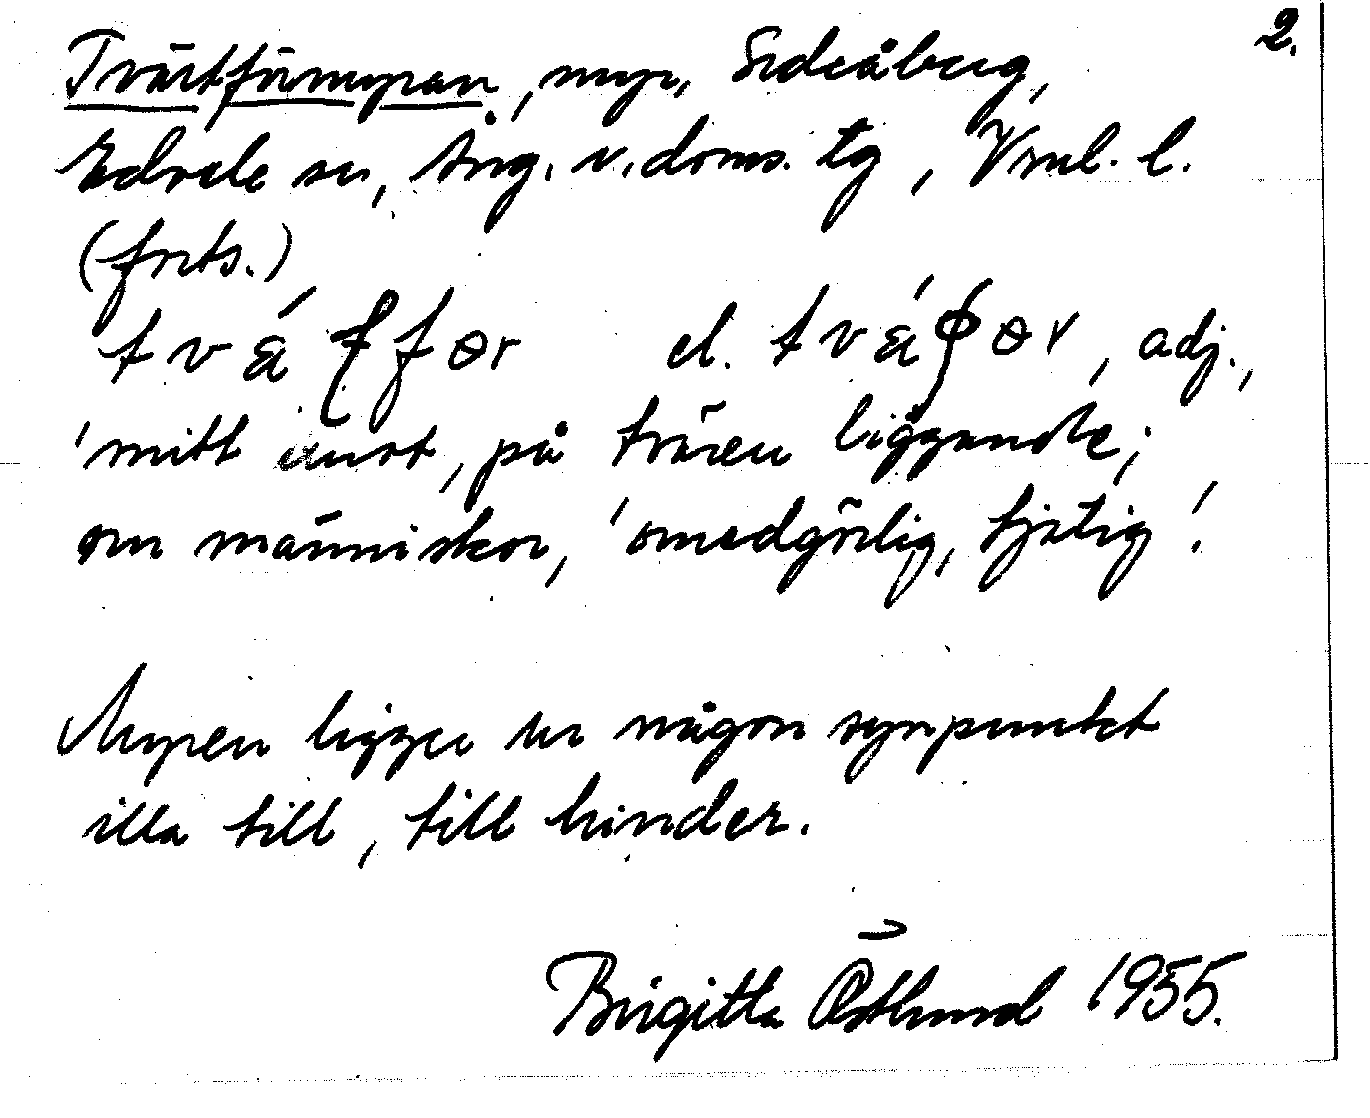 2.
Tvärtförmyran, myr, Sideåberg,
Edsele sn, Ång. v. doms. tg, Vnl. l.
(forts.)
el. , adj.,
'mitt emot, på tvären liggande;
om människor, 'omedgörlig, tjetig'.
Myren ligger ur någon synpunkt
illa till, till hinder.
Birgitta Östlund 1955.